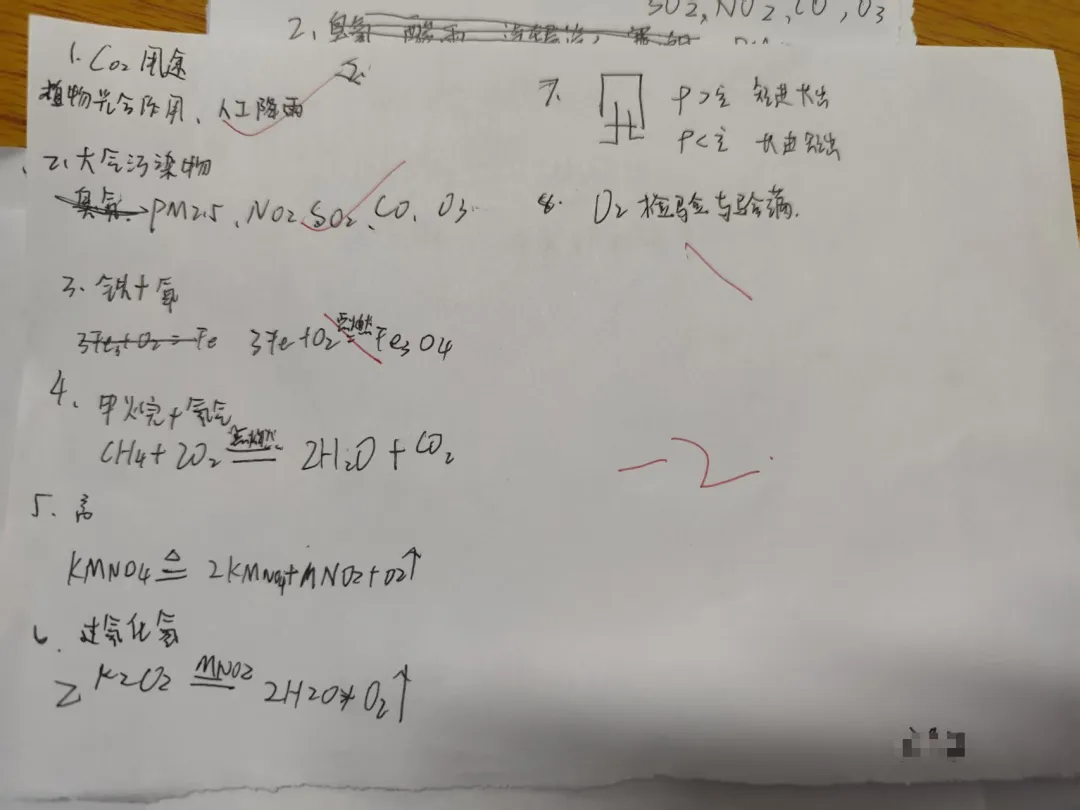 SO2、NO2、CO、O3
2、臭氧
1. CO2 用途
植物光合作用、人工降雨
2、大气污染物
臭氧、PM2.5、NO2 SO2、CO、O3
3. 铁+氧
3Fe3+O2=Fe 3Fe+O2 点燃 = Fe3O4
4、甲烷+氧气
CH4+2O2 点燃 = 2H2O+CO2
5、高
KMNO4 △ = 2KMNO4+MNO2+O2↑
6、过氧化氢
2 H2O2 MNO2 = 2H2O+O2↑
7、 ρ>空 短进长出
ρ<空 长进短出
8. O2 检验与验满.
-2